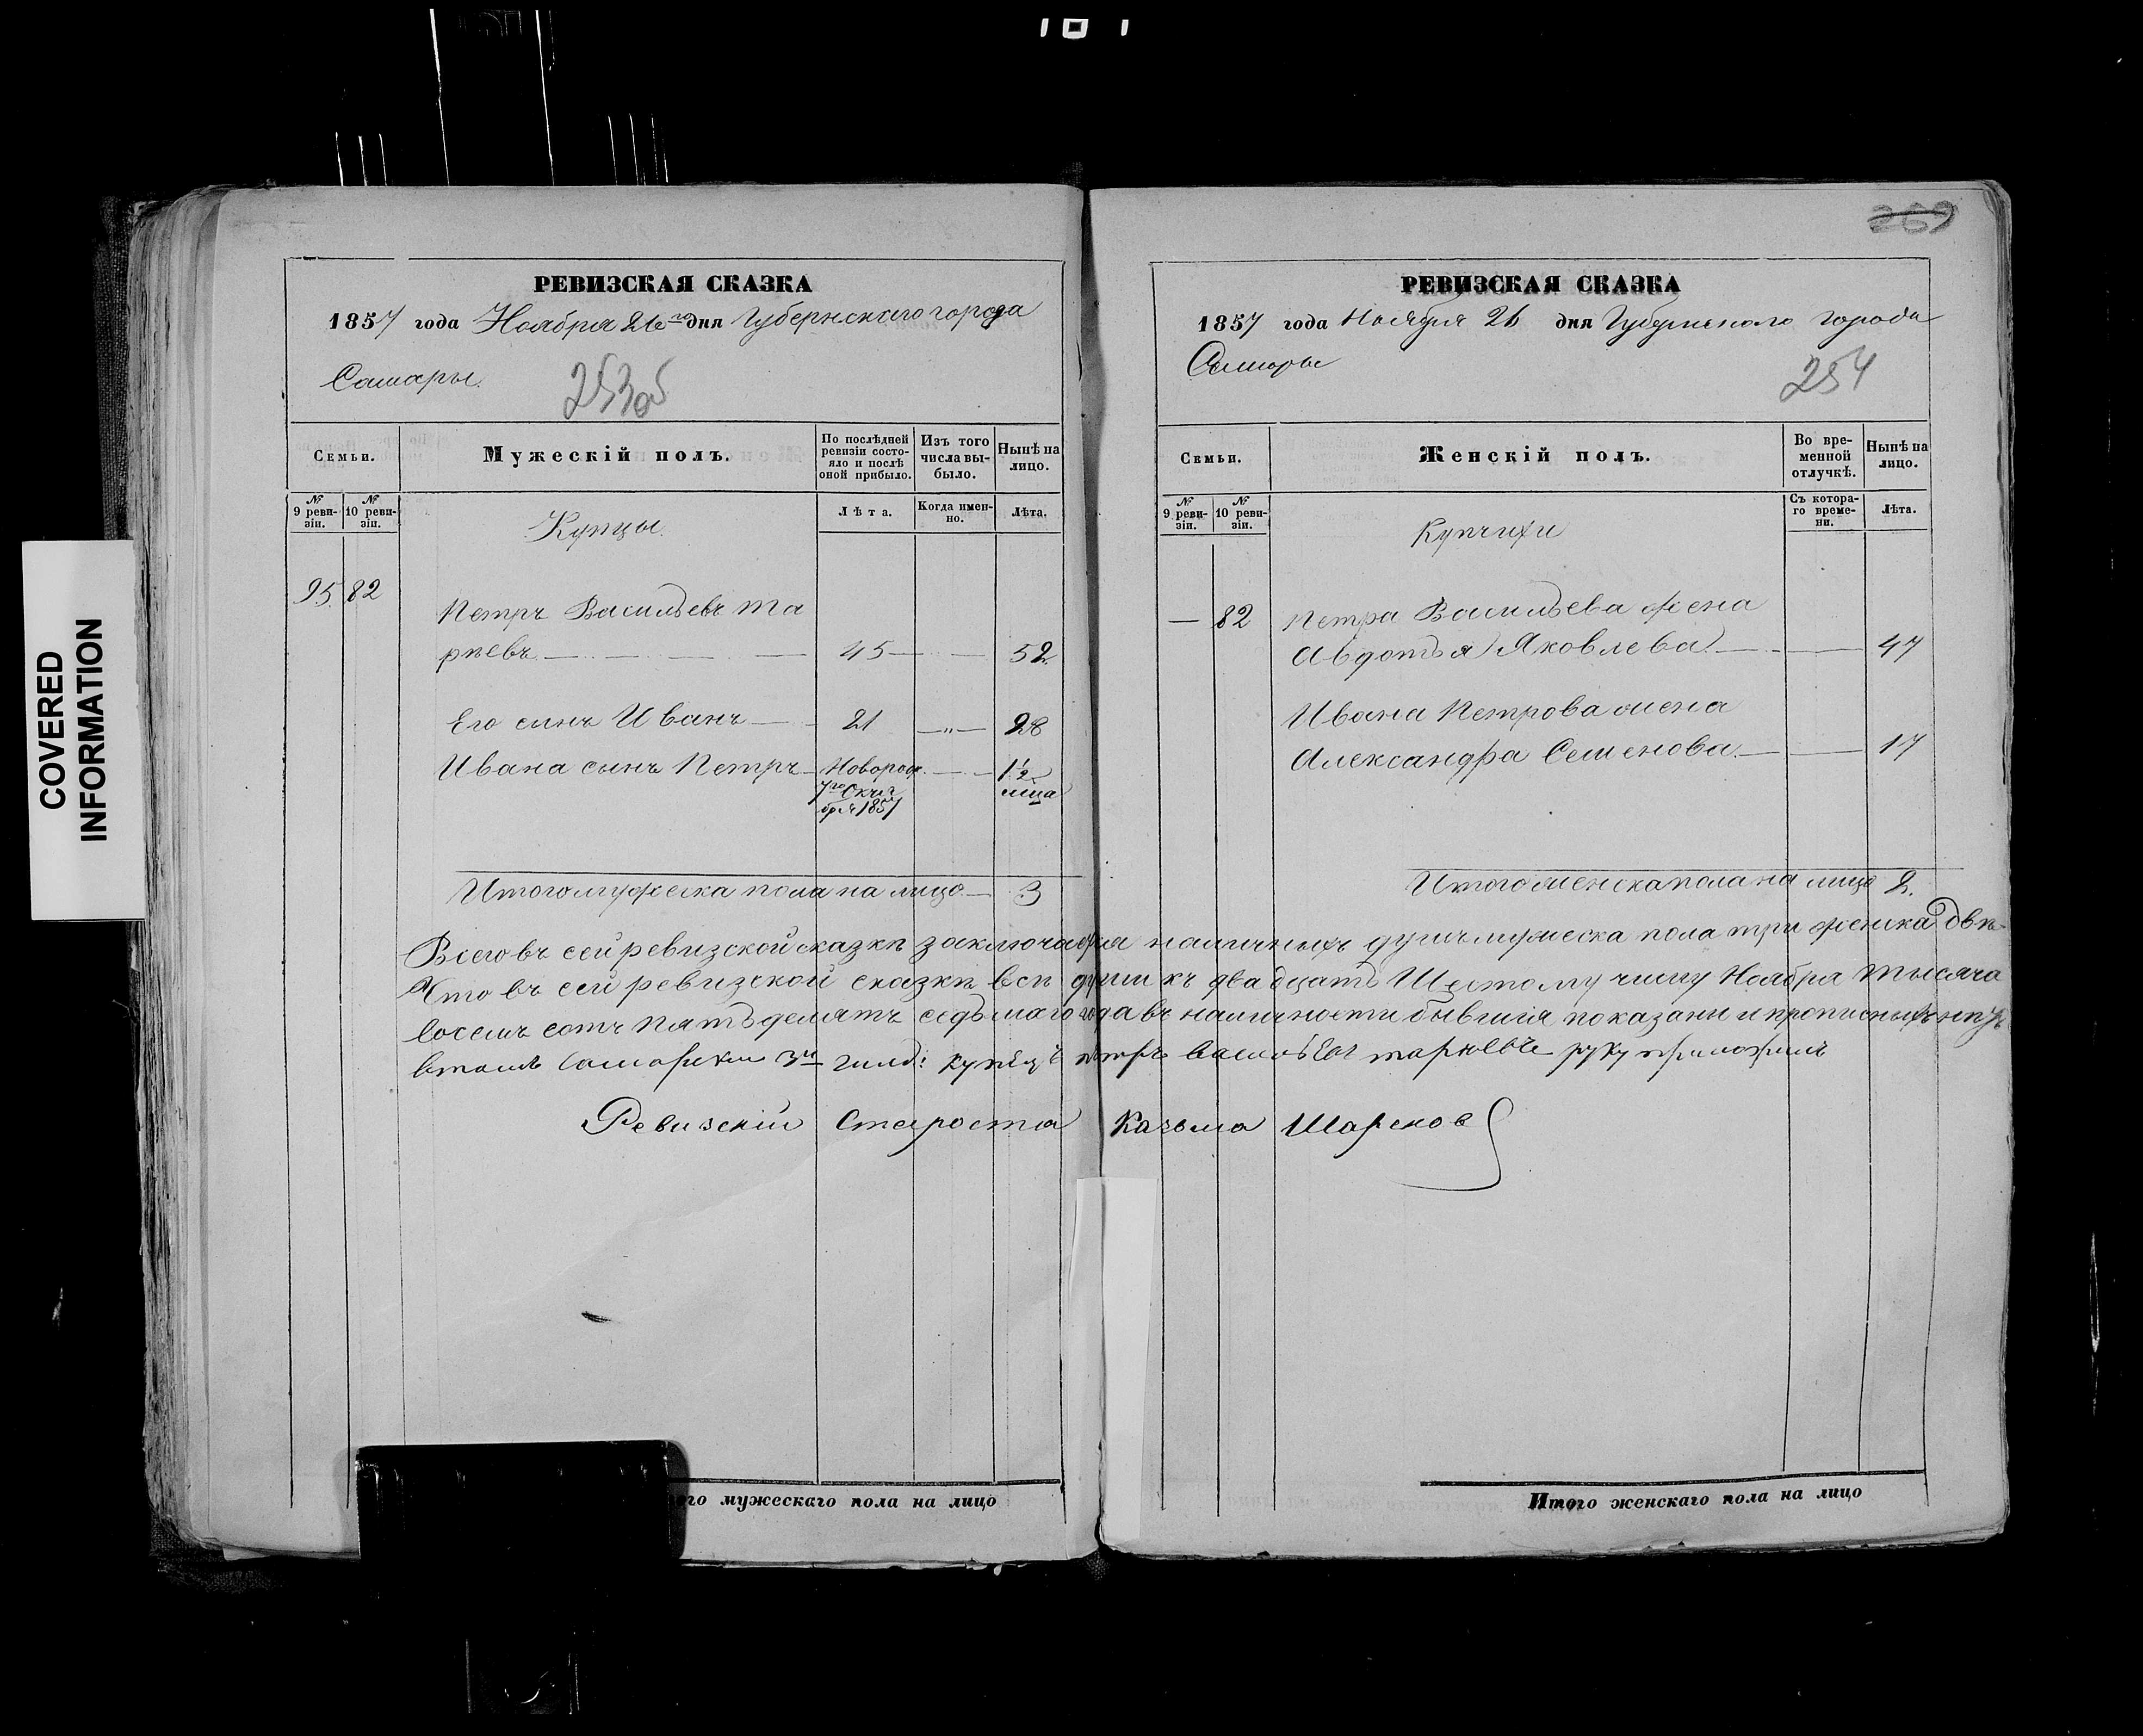 101
COVERED
INFORMATION
РЕВИЗСКАЯ СКАЗКА
1857 года Ноября 26го дня Губернскаго города
Самары.
253об
Семьи.
Мужескій полъ.
По послѣдней ревизіи состояло и послѣ оной прибыло.
Изъ того числа выбыло.
Нынѣ на лицо.
№ 9 ревизіи.
№ 10 ревизіи.
Лѣта.
Когда именно.
Лѣта.
Купцы.
95 82
Петръ Васильевъ Та
рѣевъ 45 52
Его сынъ Иванъ 21 „ 28
Ивана сынъ Петръ Новорож. 1½
7го Октя мѣца
бря 1857
Итого мужеска пола на лицо 3
того мужескаго пола на лицо
269
РЕВИЗСКАЯ СКАЗКА
1857 года Ноября 26 дня Губернскаго города
Самары
254
Семьи.
Женскій полъ.
Во временной отлучкѣ.
Нынѣ на лицо.
№ 9 ревизіи.
№ 10 ревизіи.
Съ котораго времени.
Лѣта.
Купчихи
— 82 Петра Васильева жена
Авдотья Яковлева 47
Ивана Петрова жена
Александра Семенова 17
Итого женска пола на лицо 2.
Всего въ сей ревизской сказкѣ заключается наличныхъ душъ мужеска пола три женска двѣ
Что въ сей ревизской сказкѣ всѣ души къ двадцать Шестому числу Ноября тысяча
восемь сотъ пятьдесятъ седьмаго года въ наличности бывшія показаны и прописныхъ нѣтъ
втомъ Самарски 3й гилд: купецъ петръ васильевъ тарѣевъ руку приложилъ
Ревизскій Староста Казьма Шарснов
Итого женскаго пола на лицо